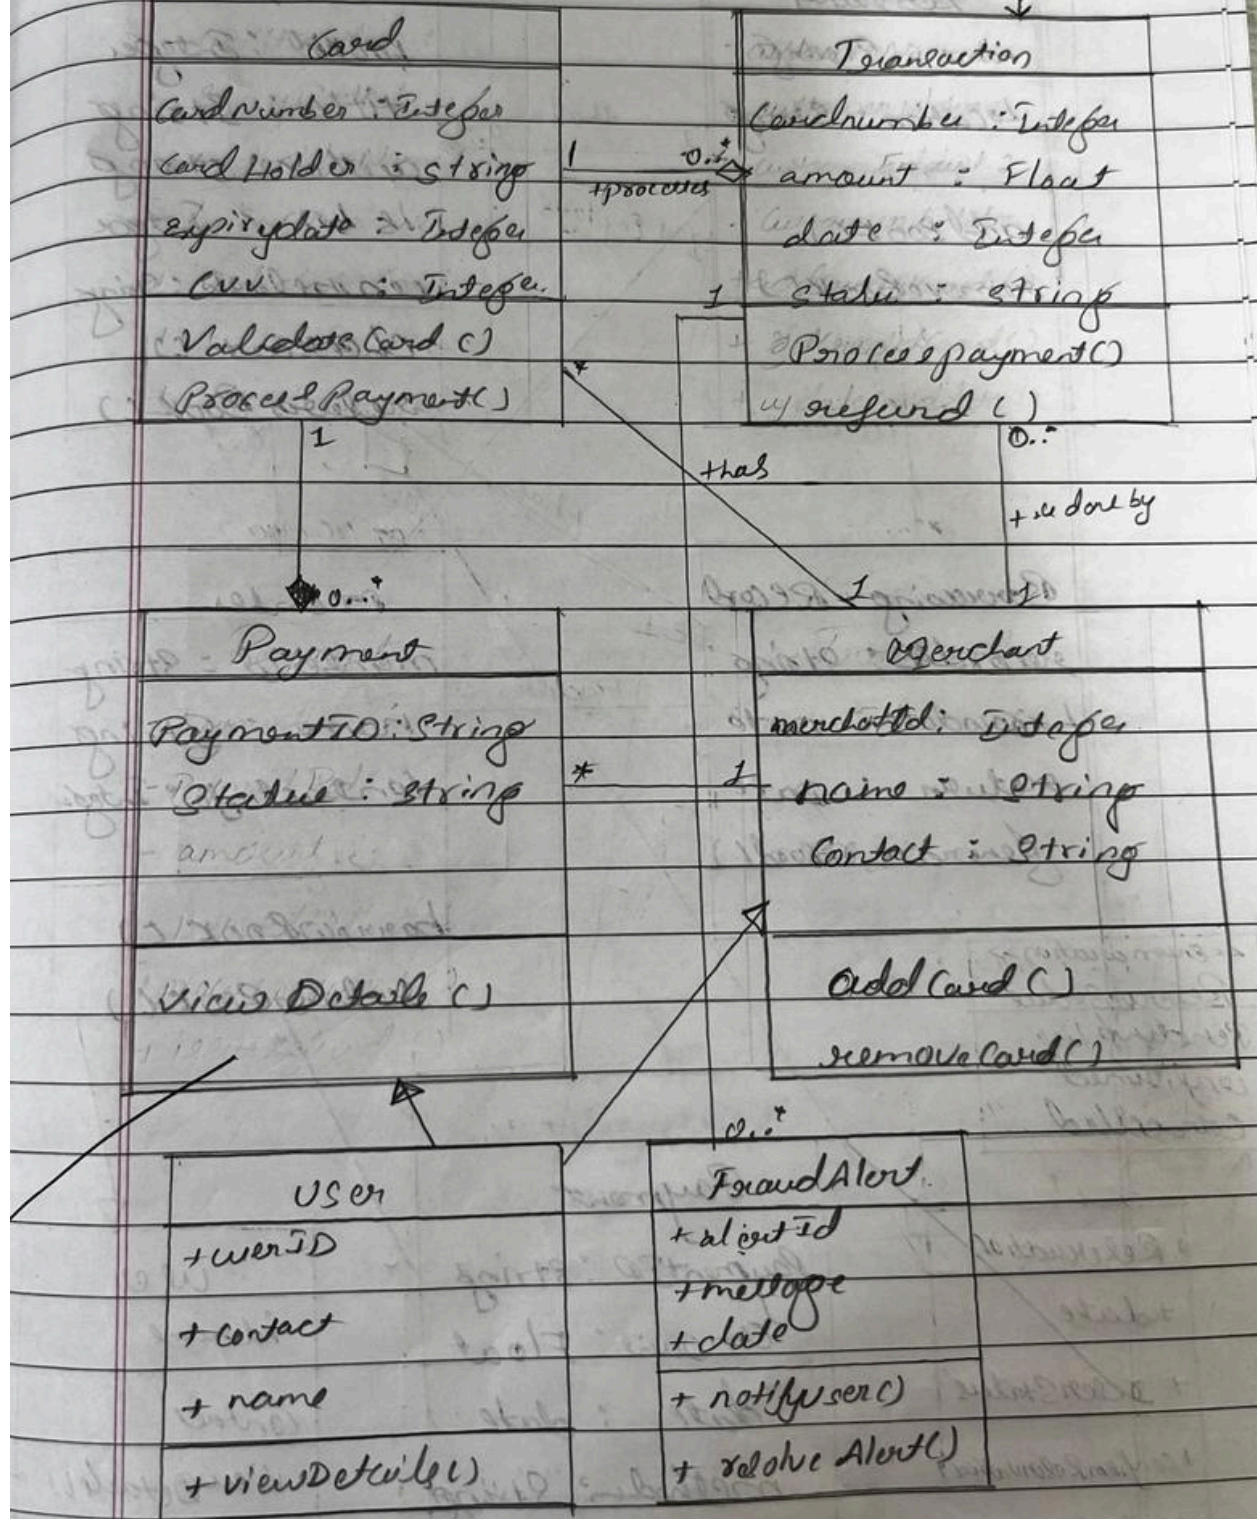 Card
CardNumber : Integer
Card Holder : String
expirydate : Integer
CVV : Integer
ValidateCard ()
ProcessPayment()
Transaction
Cardnumber : Integer
amount : Float
date : Integer
Status : String
Processpayment()
refund ()
1
0..*
+processes
1
*
1
+has
0..*
+ is done by
0..*
1
1
Payment
PaymentID : String
Status : String
View Details ()
*
1
Merchant
merchantId : Integer
name : String
Contact : String
add Card ()
removeCard()
0..*
User
+userID
+contact
+ name
+ viewDetails()
FraudAlert
+alertId
+message
+date
+ notifyuser()
+ resolve Alert()